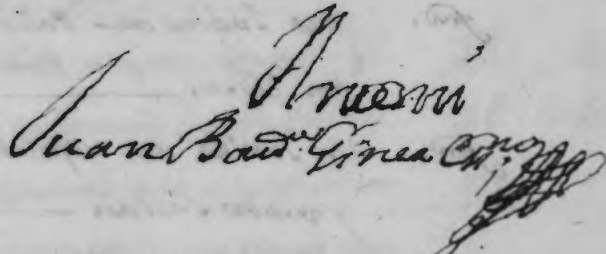 Antemi
Juan Baut.ª Ginea Es.no